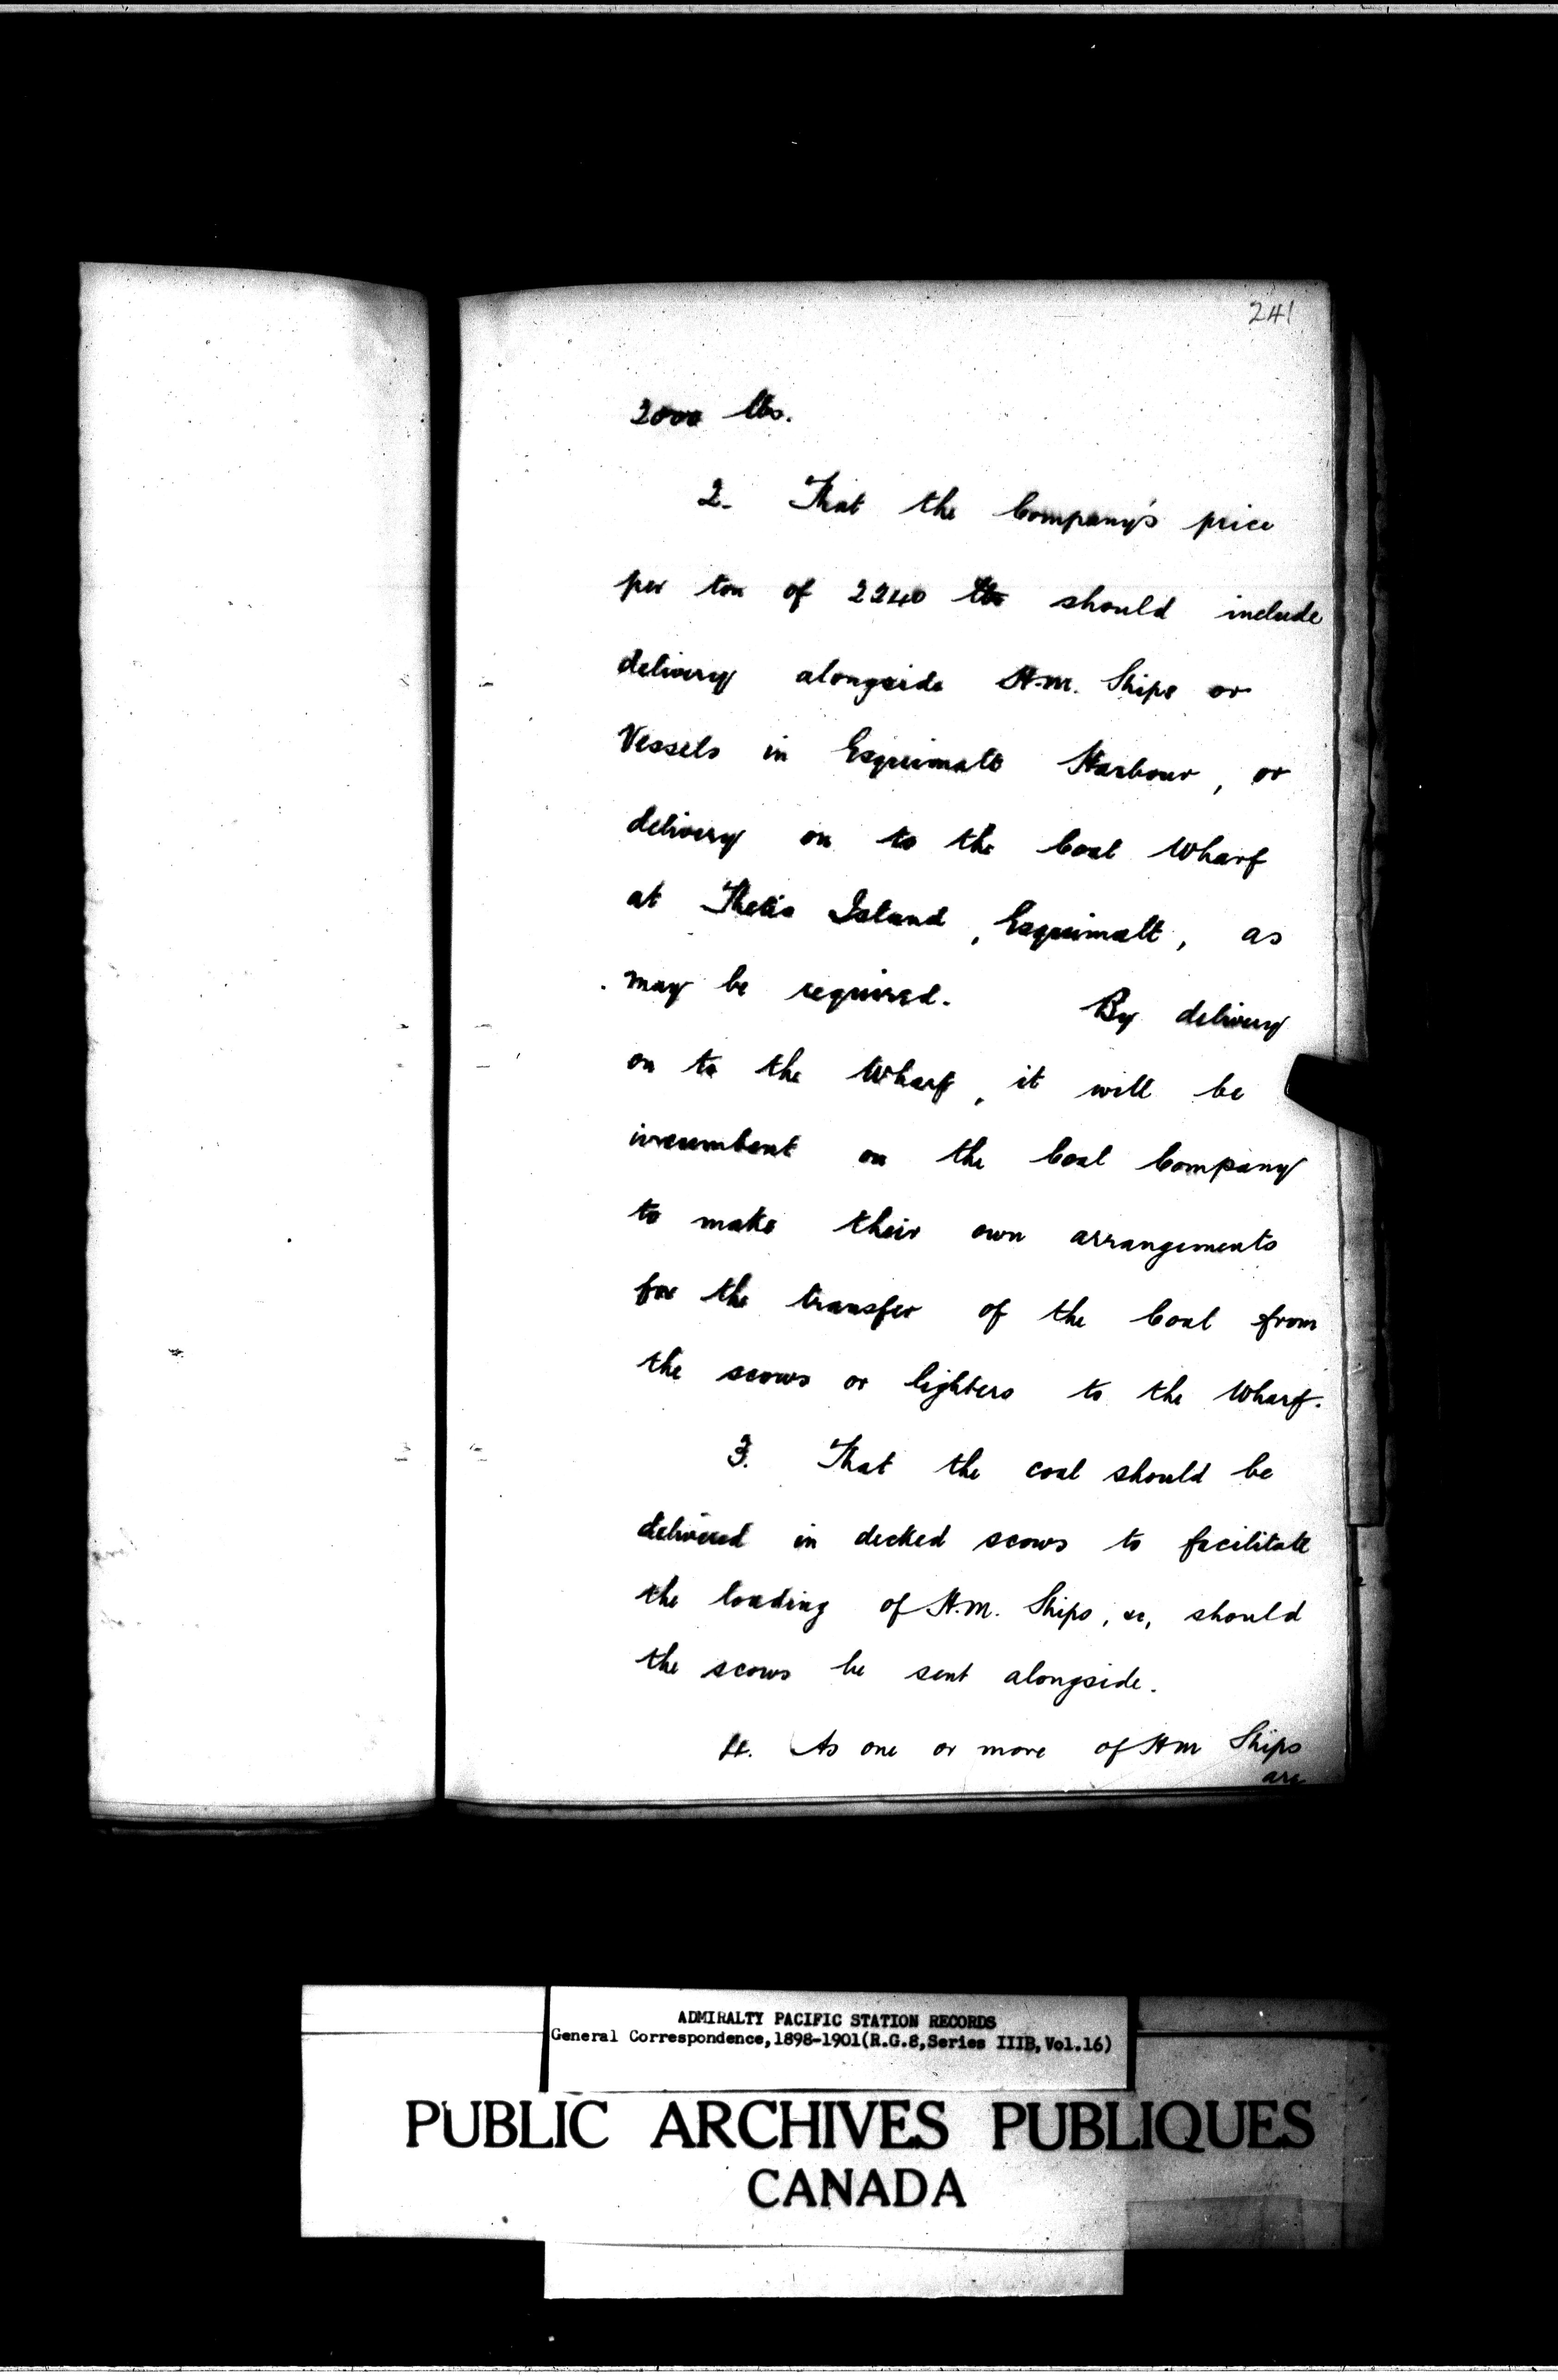 241
2000 lbs.
2. That the Company's price
per ton of 2240 lbs should include
delivery alongside H.M. Ships or
Vessels in Esquimalt Harbour, or
delivery on to the Coal Wharf
at Thetis Island, Esquimalt, as
may be required. By delivery
on to the Wharf, it will be
incumbent on the Coal Company
to make their own arrangements
for the transfer of the Coal from
the scows or lighters to the Wharf.
3. That the coal should be
delivered in decked scows to facilitate
the loading of H.M. Ships, &c, should
the scows be sent alongside.
4. As one or more of HM Ships
are
ADMIRALTY PACIFIC STATION RECORDS
General Correspondence,1898-1901(R.G.8,Series IIIB,Vol.16)
PUBLIC ARCHIVES PUBLIQUES
CANADA